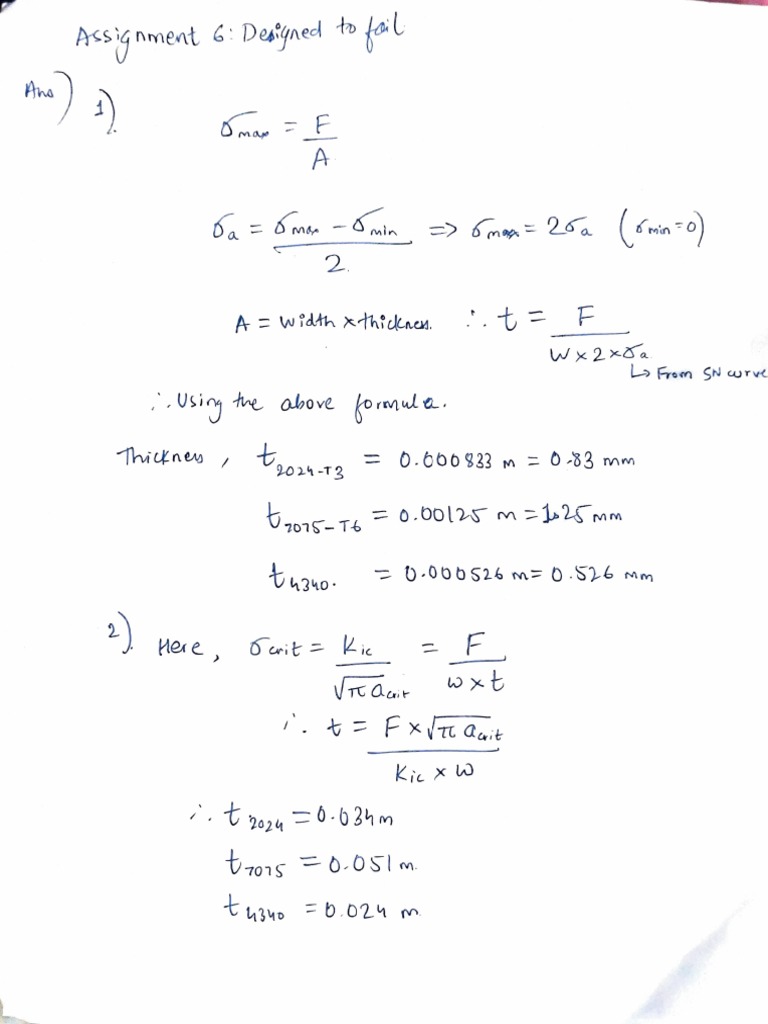 Assignment 6: Designed to fail
Ans) 1).
σmax = F/A
σa = (σmax - σmin)/2. => σmax = 2σa (σmin=0)
A = width x thickness. ∴ t = F/(W x 2 x σa)
↳ From SN curve
∴ Using the above formula.
Thickness, t2024-T3 = 0.000833 m = 0.83 mm
t7075-T6 = 0.00125 m = 1.25 mm
t4340. = 0.000526 m = 0.526 mm
2). Here, σcrit = Kic/√(π acrit) = F/(w x t)
∴ t = (F x √(π acrit))/(Kic x W)
∴ t2024 = 0.034 m
t7075 = 0.051 m.
t4340 = 0.024 m